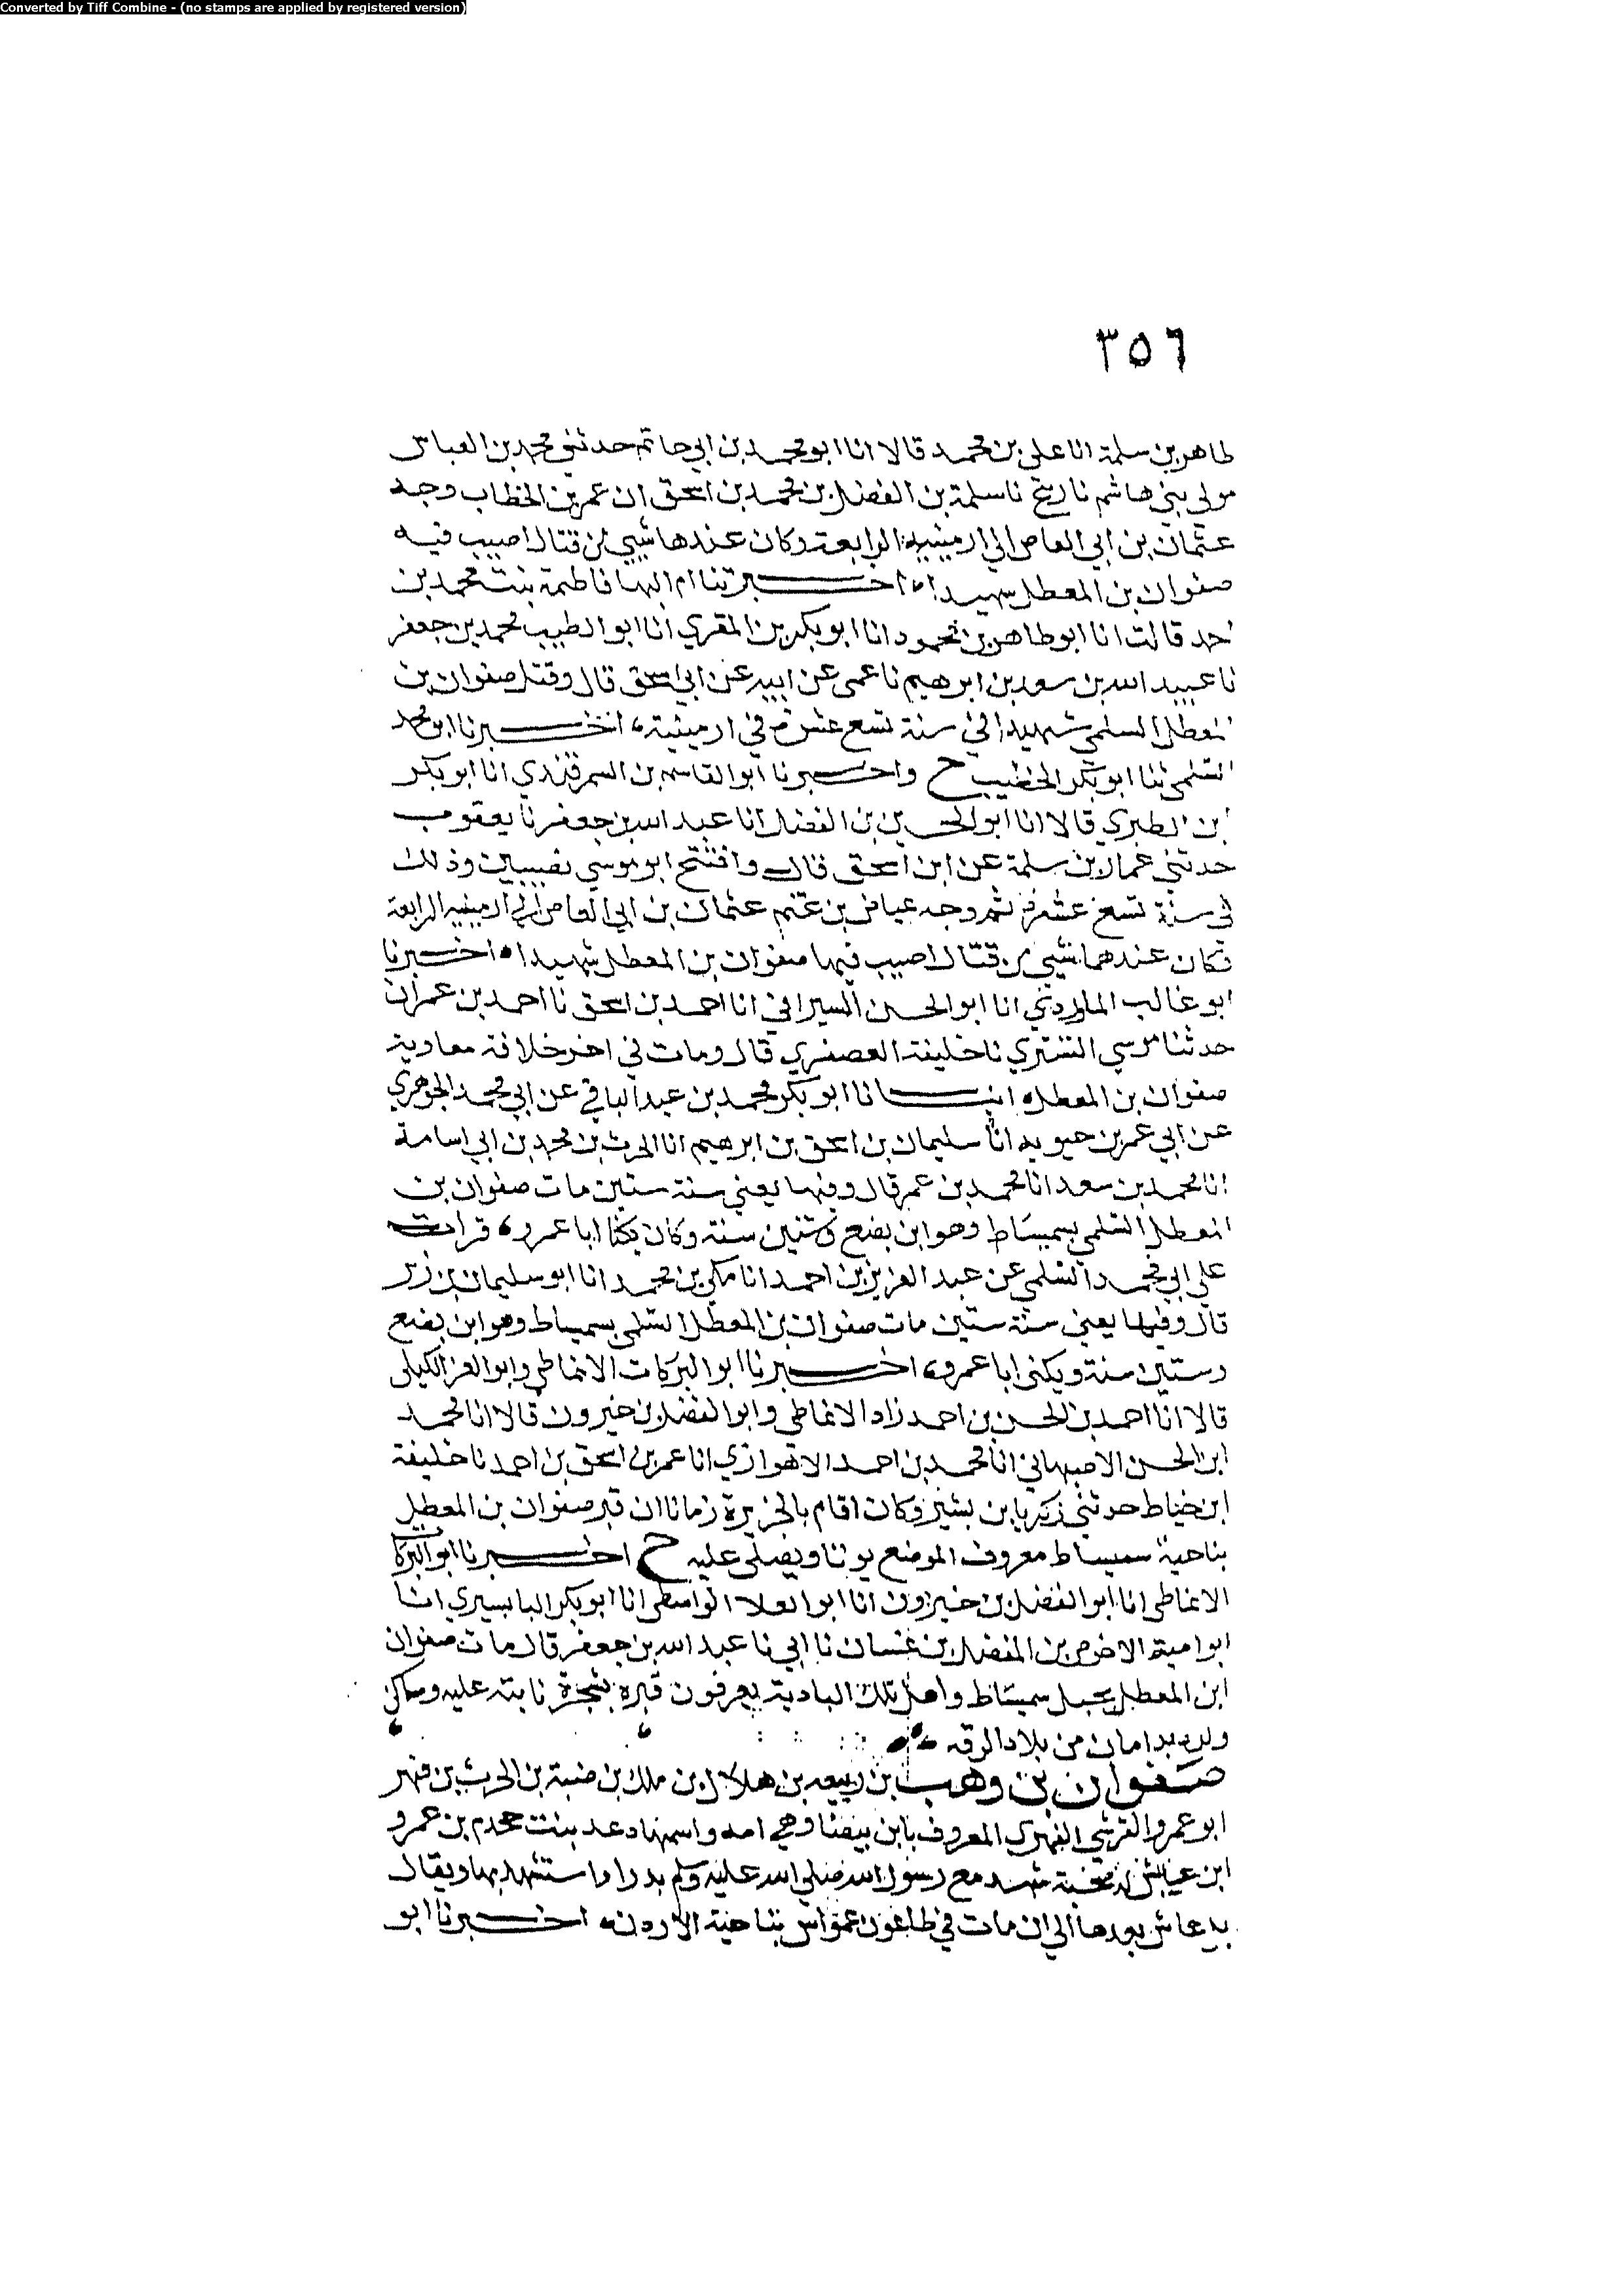 Converted by Tiff Combine - (no stamps are applied by registered version)
٣٥٦
طاهر بن سلمة انا على بن محمد قالا انا ابو محمد بن ابي حاتم حدثنى محمد بن العباس
مولى بني هاشم نا زنيج نا سلمة بن الفضل بن محمد بن اسحق ان عمر بن الخطاب وجه
عثمان بن ابي العاص الى ارمينيه الرابعة وكان عندها شيي من قتال اصيب فيه
صفوان بن المعطل شهيدا اخبرتنا ام البها فاطمة بنت محمد بن
احمد قالت انا ابو طاهر بن محمود انا ابو بكر بن المقري انا ابو الطيب محمد بن جعفر
نا عبيد الله بن سعد بن ابرهيم نا عمى عن ابيه عن ابي اسحق قال وقتل صفوان بن
المعطل السلمي شهيدا في سنة تسع عشرة في ارمينية، اخبرنا ابو محمد
السلمي نا ابو بكر الخطيب ح واخبرنا ابو القاسم بن السمرقندي انا ابو بكر
ابن الطبري قالا انا ابو الحسين بن الفضل انا عبد الله بن جعفر نا يعقوب
حدثني عمار بن سلمة عن ابن اسحق قال وافتتح ابو موسي نصيبين وذلك
في سنة تسع عشرة ثم وجه عياض بن غنم عثمان بن ابي العاص الى ارمينيه الرابعة
فكان عندها شيي من قتال اصيب فيها صفوان بن المعطل شهيدا ه اخبرنا
ابو غالب الماوردي انا ابو الحسن السيرافي انا احمد بن اسحق نا احمد بن عمران
حدثنا موسي التستري نا خليفة العصفري قال ومات في اخر خلافة معاوية
صفوان بن المعطل ه انبانا ابو بكر محمد بن عبد الباقي عن ابي محمد الجوهري
عن ابي عمر بن حيويه انا سليمان بن اسحق بن ابرهيم انا الحرث بن محمد بن ابي اسامة
انا محمد بن سعد انا محمد بن عمر قال وفيها يعني سنة ستين مات صفوان بن
المعطل السلمي بسميساط وهو ابن بضع وستين سنة وكان يكنا ابا عمرو، قرات
على ابي محمد السلمي عن عبد العزيز بن احمد انا مكي بن محمد انا ابو سليمان بن زبر
قال وفيها يعني سنة ستين مات صفوان بن المعطل السلمي بسميساط وهو ابن بضع
وستين سنة ويكنى ابا عمرو، اخبرنا ابو البركات الانماطي وابو العز الكيلى
قالا انا احمد بن الحسن بن احمد زاد الانماطي وابو الفضل بن خيرون قالا انا محمد
ابن الحسن الاصبهاني انا محمد بن احمد الاهوازي انا عمر بن اسحق بن احمد نا خليفة
ابن خياط حدثني زكريا بن بشير وكان اقام بالجزيرة زمانا ان قبر صفوان بن المعطل
بناحية سميساط معروف الموضع يوتا ويصلى عليه ح اخبرنا ابو البركات
الانماطي انا ابو الفضل بن خيرون انا ابو العلا الواسطي انا ابو بكر البابسيري انا
ابو امية الاحوص بن المفضل بن غسان نا ابي نا عبد الله بن جعفر قال مات صفوان
ابن المعطل بجبل سميساط واهل تلك البادية يعرفون قبره بشجرة نابتة عليه ومساكن
ولده بدامان من بلاد الرقه
صفوان بن وهب بن ربيعه بن هلال بن ملك بن ضبة بن الحرث بن فهر
ابو عمرو القرشي الفهرى المعروف بابن بيضا وهي امه واسمها دعد بنت جحدم بن عمرو
ابن عايش له صحبة شهد مع رسول الله صلى الله عليه وسلم بدرا واستشهد بها ويقال
بل عاش بعدها الى ان مات في طاعون عمواس بناحية الاردن ه اخبرنا ابو